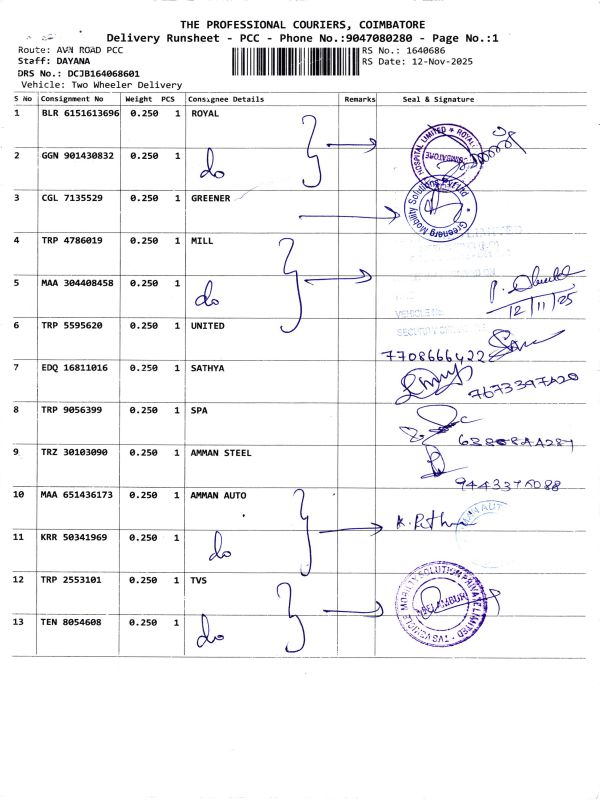 THE PROFESSIONAL COURIERS, COIMBATORE
Delivery Runsheet - PCC - Phone No.:9047080280 - Page No.:1
Route: AVN ROAD PCC
RS No.: 1640686
Staff: DAYANA
RS Date: 12-Nov-2025
DRS No.: DCJB164068601
Vehicle: Two Wheeler Delivery
S No Consignment No Weight PCS Consignee Details Remarks Seal & Signature
1 BLR 6151613696 0.250 1 ROYAL
HOSPITAL LIMITED * ROYAL
COIMBATORE
2 GGN 901430832 0.250 1 do
3 CGL 7135529 0.250 1 GREENER
Greenerg Mobility Solutions
4 TRP 4786019 0.250 1 MILL
5 MAA 304408458 0.250 1 do
12/11/25
VEHICLE No.
6 TRP 5595620 0.250 1 UNITED
7708666422
7 EDQ 16811016 0.250 1 SATHYA
8 TRP 9056399 0.250 1 SPA
9 TRZ 30103090 0.250 1 AMMAN STEEL
10 MAA 651436173 0.250 1 AMMAN AUTO
11 KRR 50341969 0.250 1 do
12 TRP 2553101 0.250 1 TVS
TVS VEHICLE MOBILITY SOLUTION PRIVATE LIMITED
13 TEN 8054608 0.250 1 do